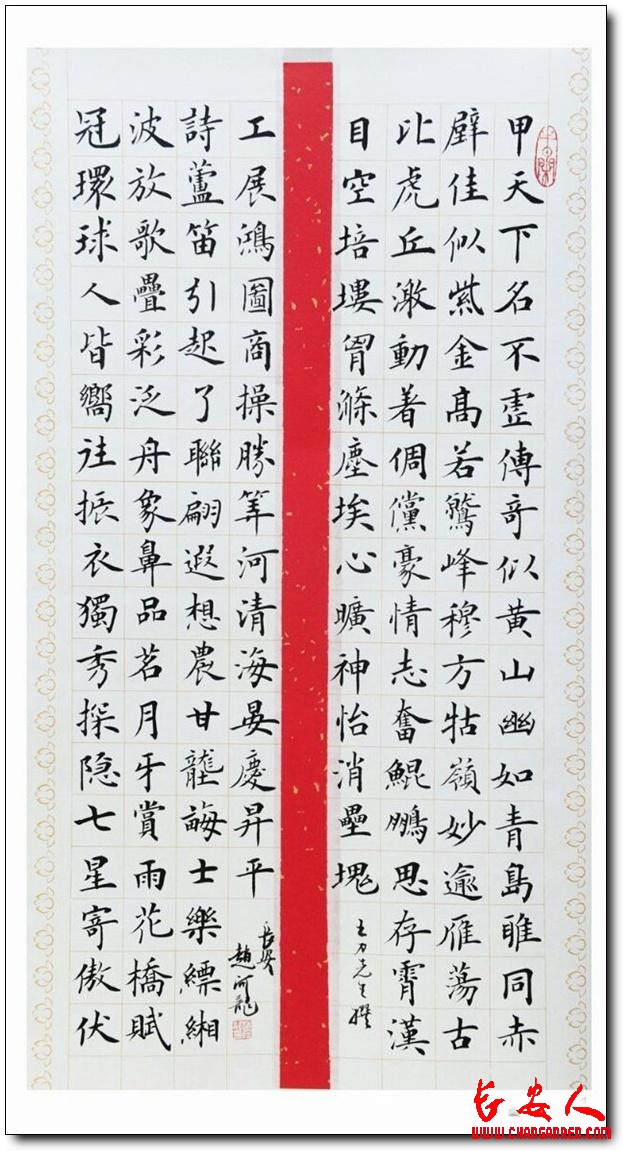 甲天下名不虛傳奇似黄山幽如青島睢同赤
壁佳似紫金高若鷲峰穆方牯嶺妙逾雁蕩古
比虎丘激動着倜儻豪情志奮鯤鵬思存霄漢
目空培塿胷滌塵埃心曠神怡消壘塊
王力先生撰
冠環球人皆嚮往振衣獨秀探隐七星寄傲伏
波放歌疊彩泛舟象鼻品茗月牙賞雨花橋賦
詩蘆笛引起了聯翩遐想農甘壟畮士樂縹緗
工展鴻圖商操勝筭河清海晏慶昇平
長安
趙河龍
长安人
WWW.CHANGANREN.COM